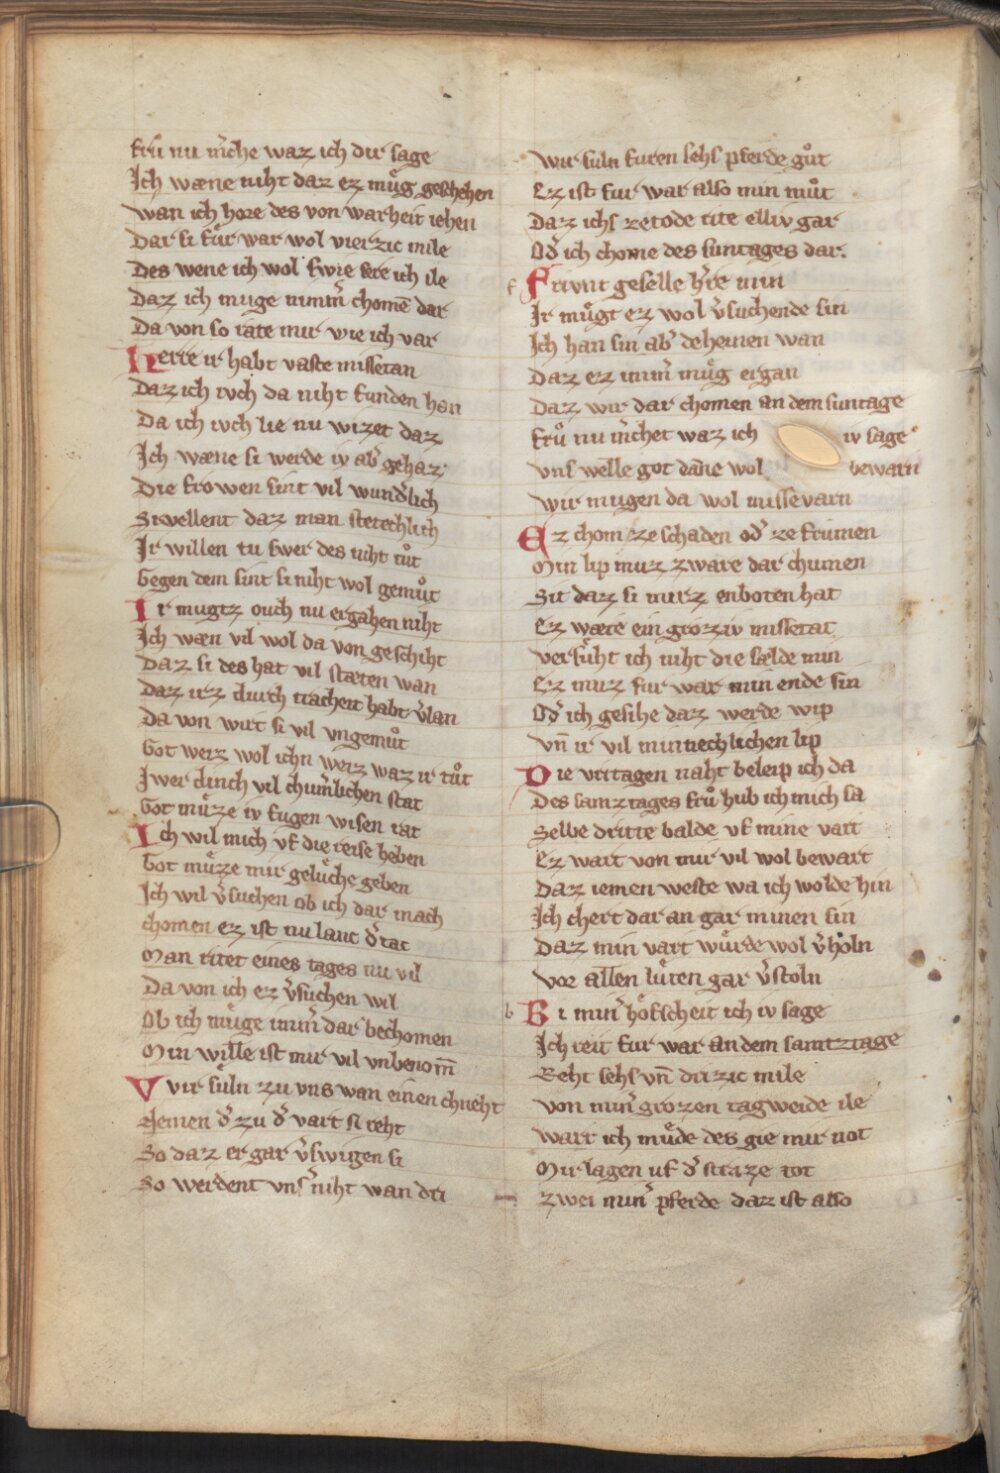 frů nu m̄che waz ich dir sage
Ich wæne niht daz ez muͤg geschehen
wan ich hore des von warheit iehen
Dar si fuͤr war wol vierzic mile
Des wene ich wol swie sere ich ile
Daz ich muge nimm̄ chomē dar
Da von so rate mir wie ich var
Herre ir habt vaste missetan
Daz ich ivch da niht funden han
Da ich ivch lie nu wizet daz
Ich wæne si werde iv ab̄ gehaz
Die frowen sint vil wund̄lich
Si wellent daz man stetechlich
Ir willen tu swer des niht tuͦt
Gegen dem sint si niht wol gemuͦt
Ir mugtz ouch nu ergahen niht
Ich wæn vil wol da von geschiht
Daz si des hat vil stæten wan
Daz irz durch tracheit habt v̄lan
Da von wirt si vil vngemuͦt
Got weiz wol ichn weiz waz ir tuͦt
Iwer dinch vil chum̄lichen stat
Got muͤze iv fugen wisen rat
Ich wil mich vf die reise heben
Got muͤze mir geluͤche geben
Ich wil v̄suchen ob ich dar mach
chomen ez ist nu lanc d̄ tac
Man ritet eines tages nu vil
Da von ich ez v̄suchen wil
Ob ich muͤge imm̄ dar bechomen
Min wille ist mir vil vnbenom̄
Wir suͤln zu vns wan einen chneht
Nemen d̄ zu d̄ vart si reht
So daz er gar v̄swigen si
So werdent vns̄ niht wan dri
wir suln furen sehs pferde guͦt
Ez ist fur war also min muͦt
Daz ichs ze tode rite elliv gar
Od̄ ich chome des suntages dar.
f Frivnt geselle h̄re min
Ir muͤgt ez wol v̄suchende sin
Ich han sin ab̄ deheinen wan
Daz ez imm̄ muͤg ergan
Daz wir dar chomen an dem suntage
fruͦ nu m̄chet waz ich iv sage
vns welle got dāne wol bewarn
wir mugen da wol missevarn
Ez chom ze schaden od̄ ze frumen
Min lip muz zware dar chumen
Sit daz si mirz enboten hat
Ez wære ein groziv missetat
versuͤht ich niht die sælde min
Ez muz fur war min ende sin
Od̄ ich gesihe daz werde wip
Vn̄ ir vil minnechlichen lip
Die vritagen naht beleip ich da
Des samztages fruͦ hub ich mich sa
Selbe dritte balde vf mine vart
Ez wart von mir vil wol bewart
Daz iemen weste wa ich wolde hin
Ich chert dar an gar minen sin
Daz min vart wuͤrde wol v̄holn
vor allen luͤten gar v̄stoln
b Bi min̄ hoͤfscheit ich iv sage
Ich reit fur war an dem samtztage
Reht sehs vn̄ drizic mile
von min̄ grozen tagweide ile
wart ich muͤde des gie mir not
Mir lagen uf d̄ straze tot
zwei min̄ pferde daz ist also